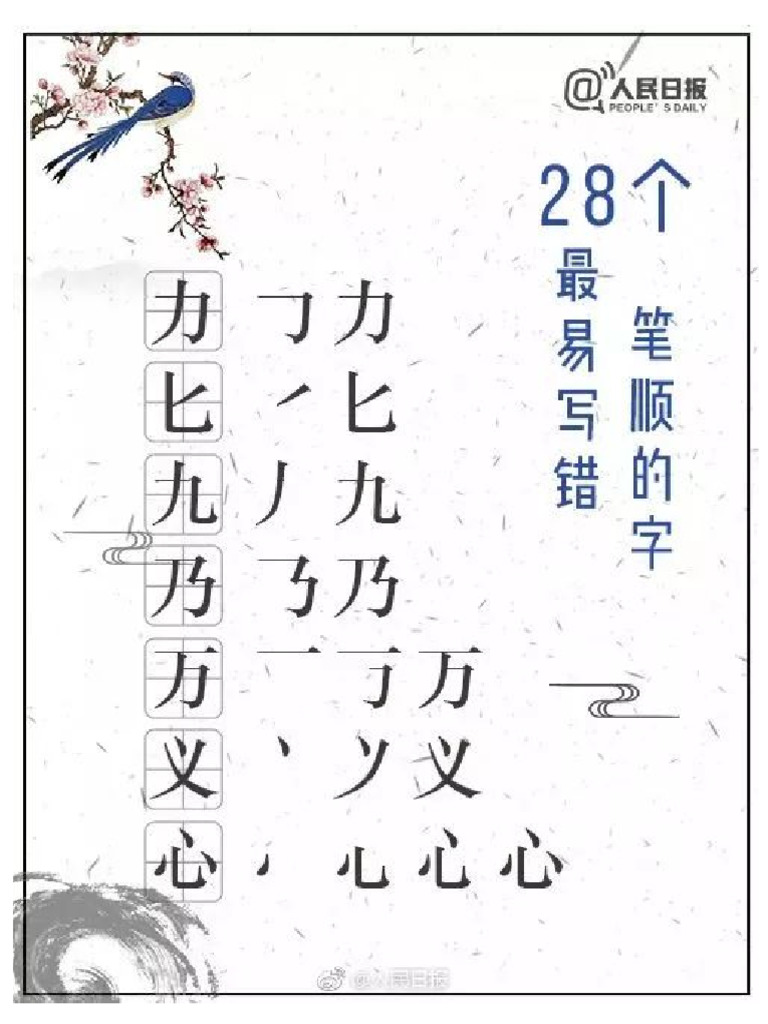 @人民日报
PEOPLE'S DAILY
28个
最易写错
笔顺的字
力 ㇆ 力
匕 ㇒ 匕
九 丿 九
乃 ㇋ 乃
万 一 丆 万
义 丶 丷 义
心 心
@人民日报